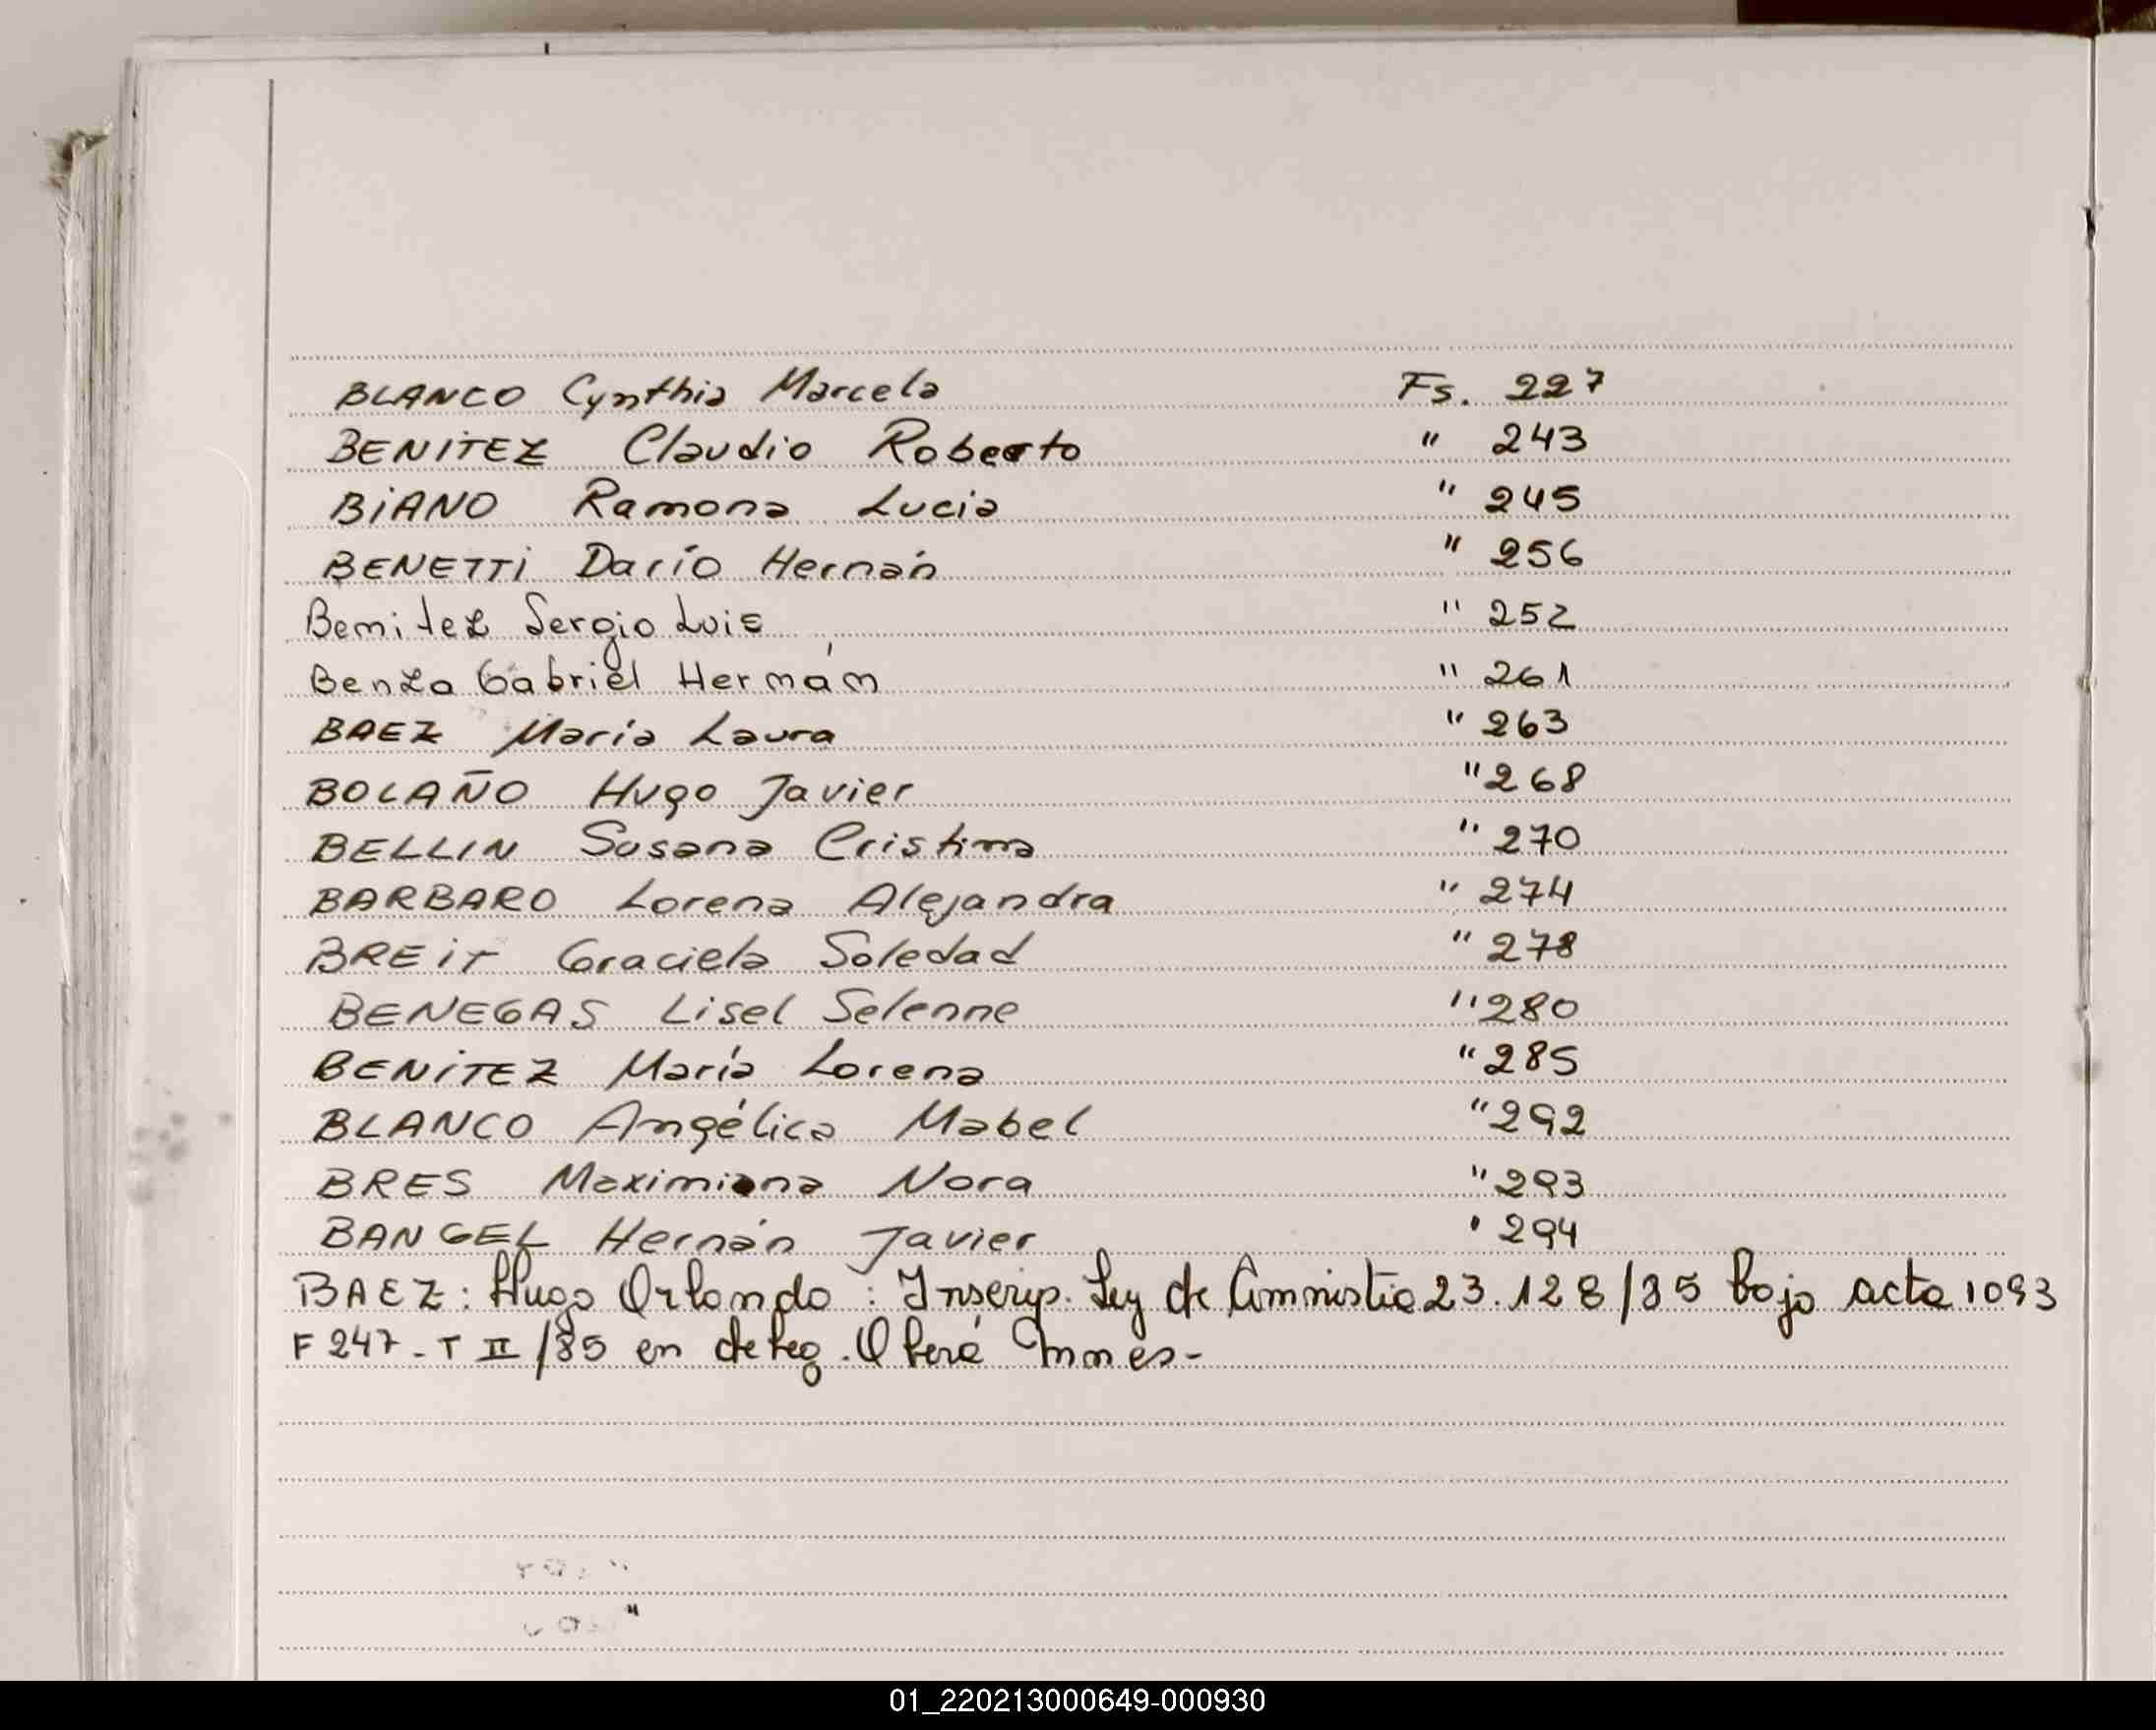 BLANCO Cynthia Marcela Fs. 227
BENITEZ Claudio Roberto " 243
BIANO Ramona Lucia " 245
BENETTI Darío Hernán " 256
Benitez Sergio Luis " 252
Benza Gabriel Hernán " 261
BAEZ María Laura " 263
BOLAÑO Hugo Javier " 268
BELLIN Susana Cristina " 270
BARBARO Lorena Alejandra " 274
BREIT Graciela Soledad " 278
BENEGAS Lisel Selenne " 280
BENITEZ María Lorena " 285
BLANCO Angélica Mabel " 292
BRES Maximiana Nora " 293
BANGEL Hernán Javier ' 294
BAEZ: Hugo Orlando: Inscrip. Ley de Amnistia 23.128/85 bajo acta 1093
F 247 - T II /85 en deleg. Oberá Mnes-
01_220213000649-000930